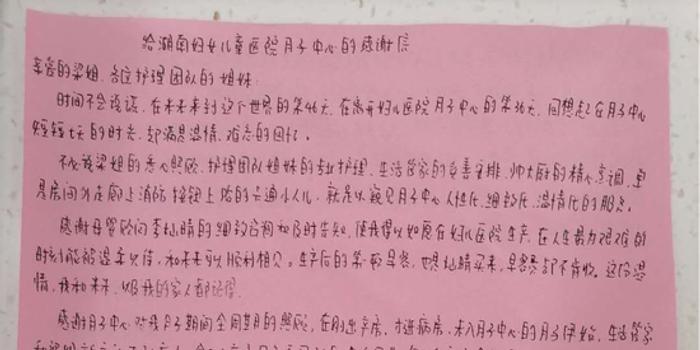 给湖南妇女儿童医院月子中心的感谢信
亲爱的梁姐、各位护理团队的姐妹:
时间不会说谎,在未来来到这个世界的第46天,在离开妇儿医院月子中心的第36天,回想起在月子中心
短短七天的时光,都满是温情、难忘的回忆。
不必说梁姐的悉心照顾,护理团队姐妹的专业护理,生活管家的妥善安排,帅大厨的精心烹调,单
是房间外走廊上消防按钮上贴的卡通小人儿,就足以窥见月子中心人性化、细致化、温情化的服务。
感谢母婴顾问李灿晴的细致咨询和及时告知,使我得以如愿在妇儿医院生产,在人生最为艰难的
时刻能被温柔以待,和未来可以顺利相见。生产后的第一顿早餐,也是灿晴买来,早餐费都不肯收。这份温
情,我和未来,以及我的家人都记得。
感谢月子中心对我月子期间全周期的照顾,在刚出产房,才进病房,未入月子中心的月子伊始,生活管家